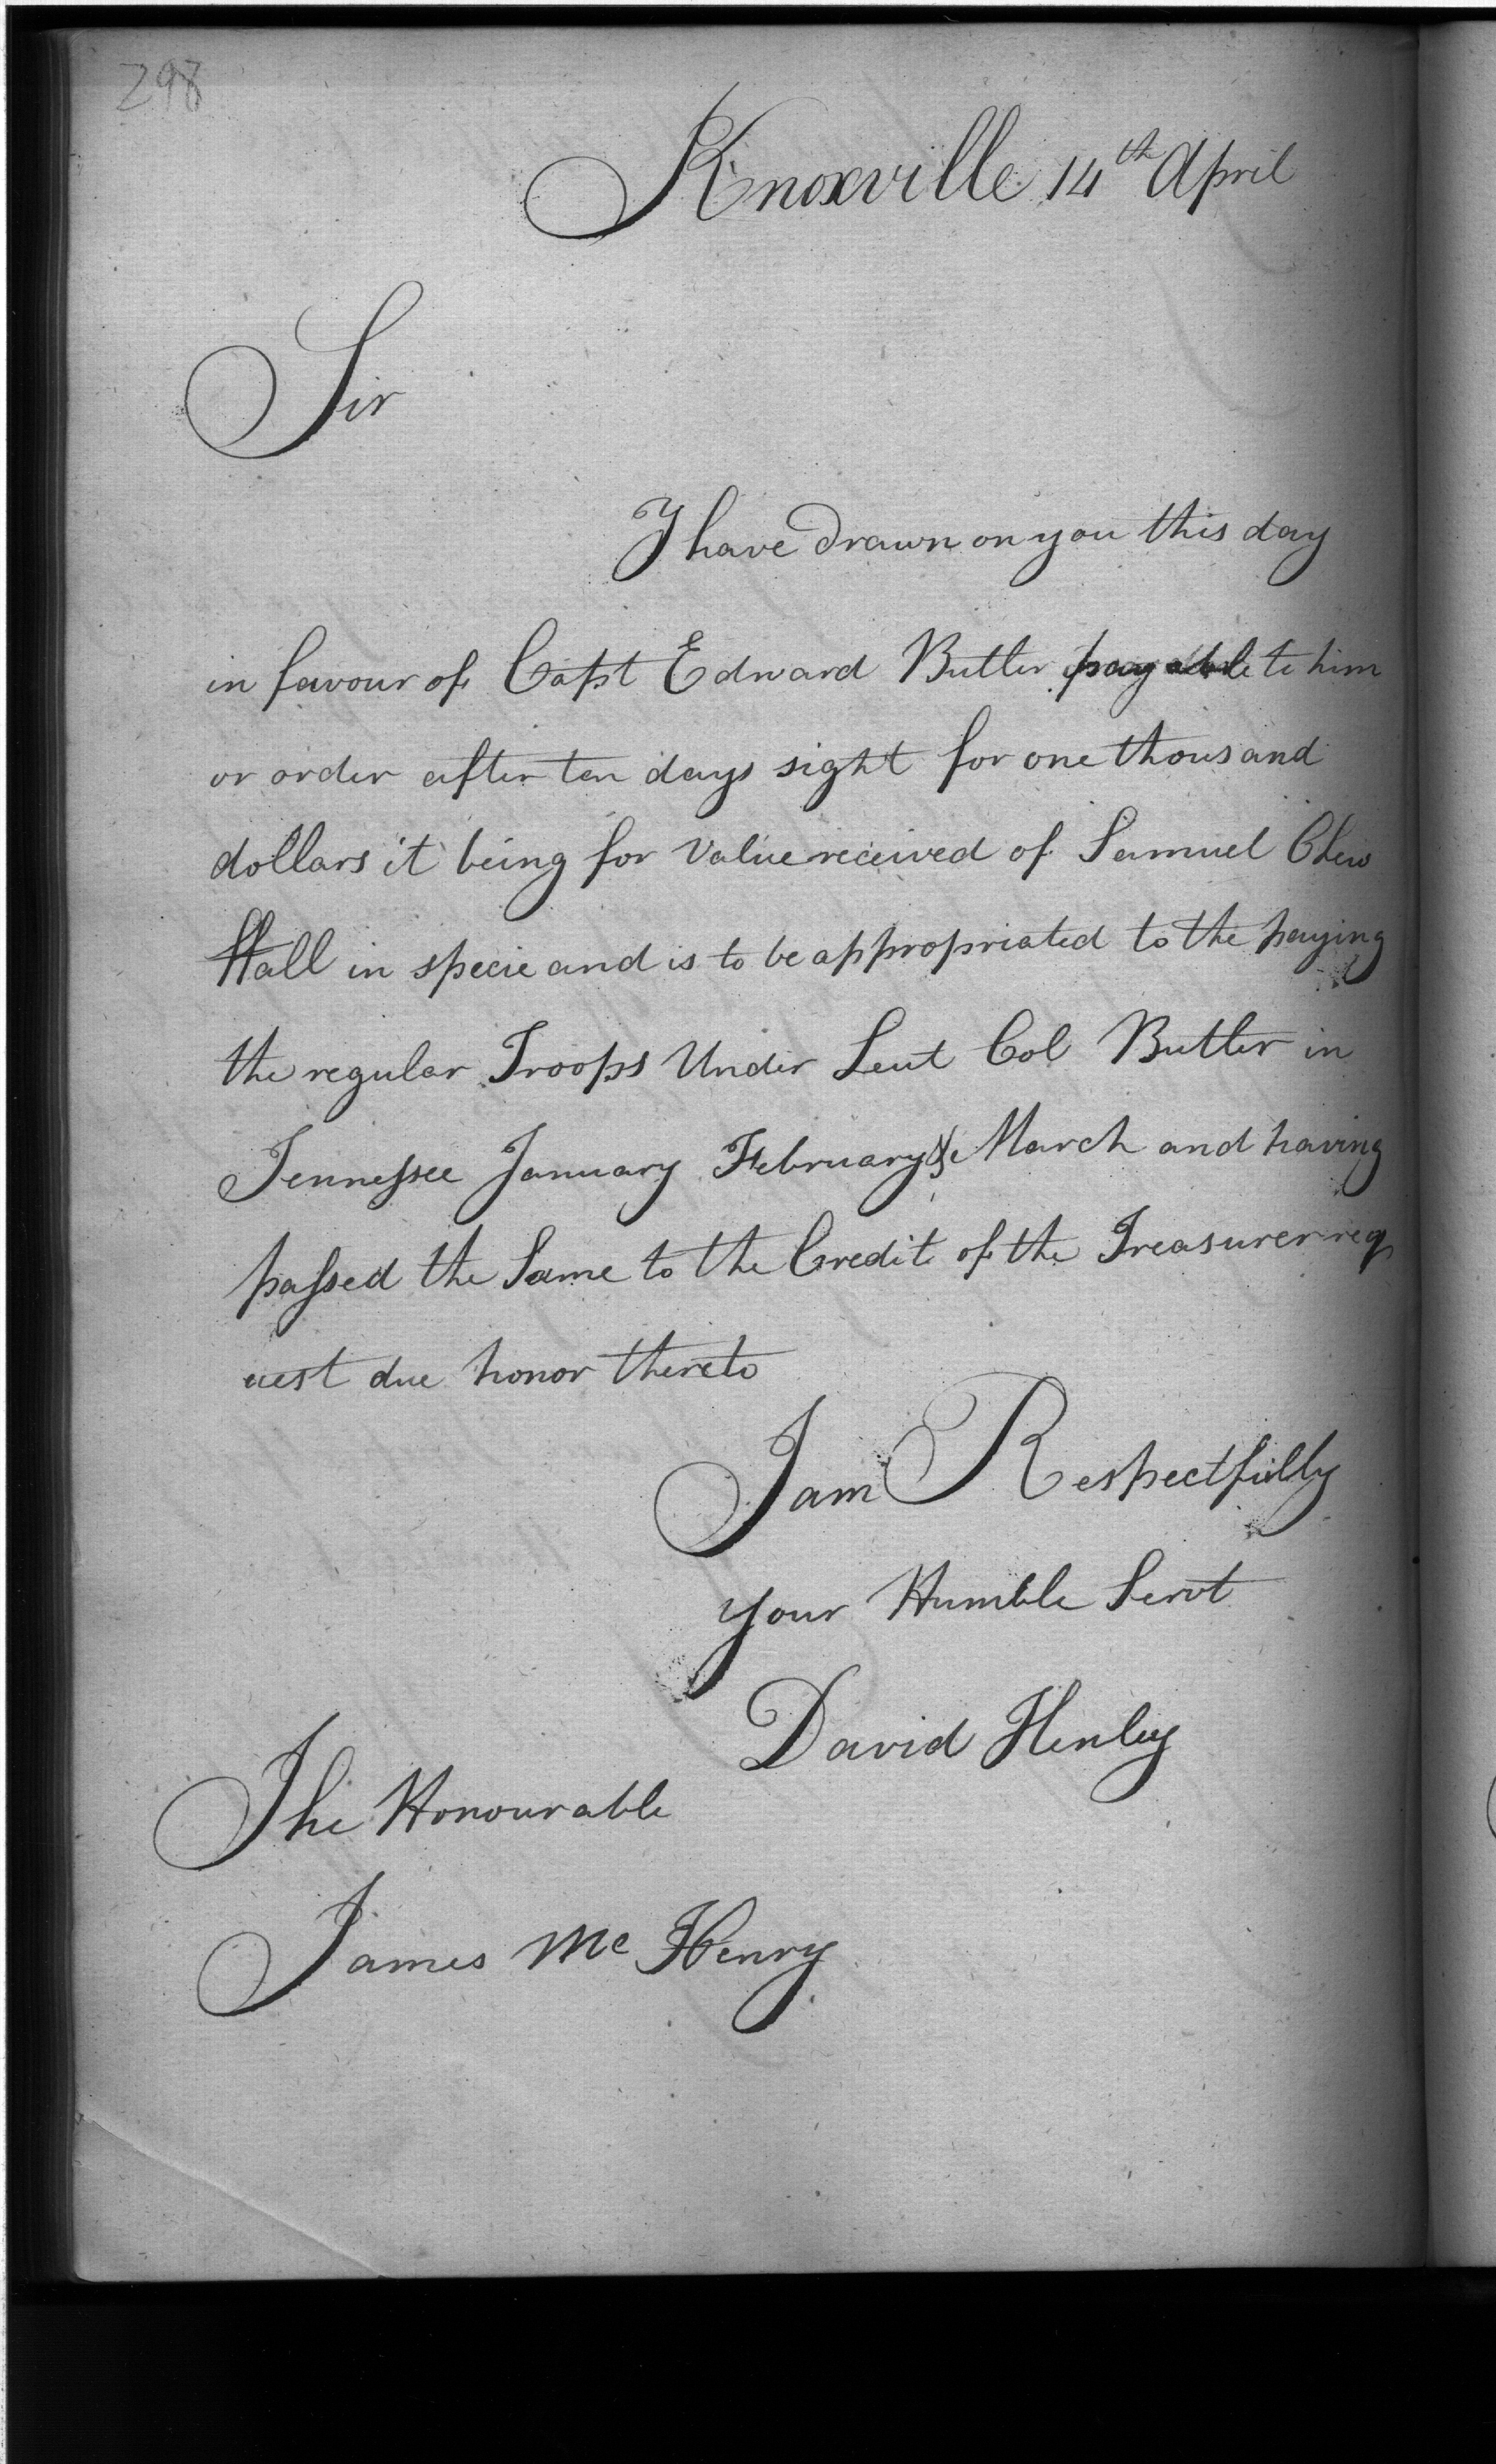 298
Knoxville 14th April
Sir
I have drawn on you this day
in favour of Capt Edward Butler payable to him
or order after ten days sight for one thousand
dollars it being for Value received of Samuel Chew
Hall in specie and is to be appropriated to the paying
the regular Troops Under Leut Col Butler in
Tennessee January February & March and having
passed the Same to the Credit of the Treasurer req
uest due honor thereto
I am Respectfully
your Humble Servt
David Henley
The Honourable
James McHenry